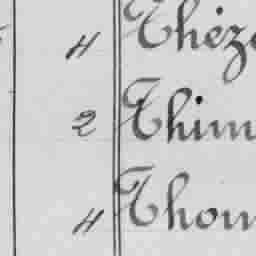 4 Théze
2 Thim
4 Thom